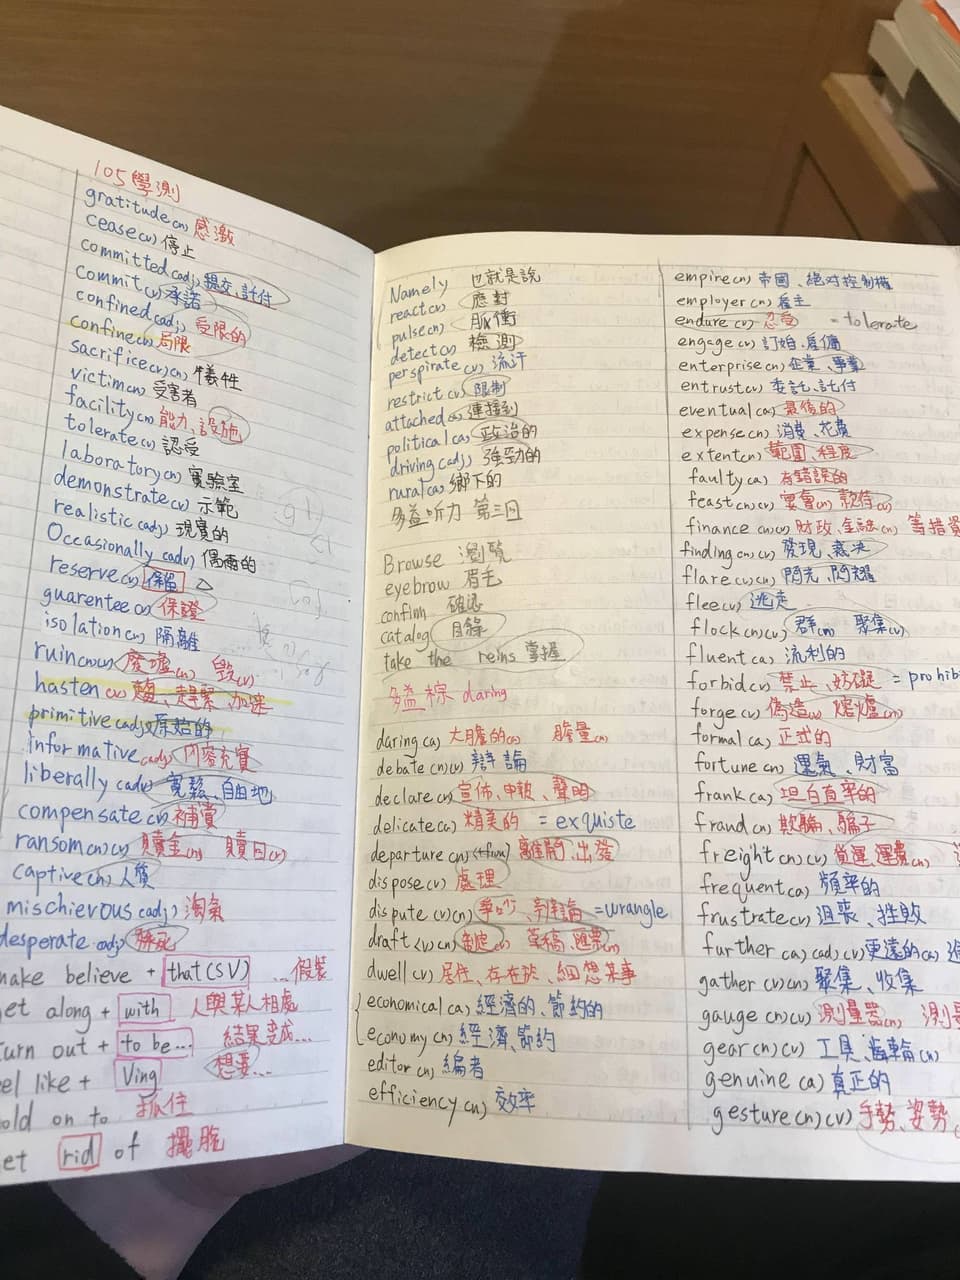 105學測
gratitude(n) 感激
cease(v) 停止
committed(adj) 提交、託付
commit(v) 承諾
confined(adj) 受限的
confine(n) 局限
sacrifice(v)(n) 犧牲
victim(n) 受害者
facility(n) 能力、設施
tolerate(v) 認受
laboratory(n) 實驗室
demonstrate(v) 示範
realistic(adj) 現實的
Occasionally(adv) 偶爾的
reserve(v) 保留 △
guarentee(n) 保證
isolation(n) 隔離
ruin(n)(v) 廢墟(n) 毀(v)
hasten(v) 趕緊 加速
primitive(adj) 原始的
informative(adj) 內容充實
liberally(adv) 寬鬆、自由地
compensate(v) 補償
ransom(n)(v) 贖金(n) 贖回(v)
captive(n) 人質
mischievous(adj) 淘氣
desperate(adj)
make believe + that(SV) ...假裝
et along + with 人與某人相處
turn out + to be... 結果變成...
el like + Ving 想要...
old on to 抓住
et rid of 擺脫
Namely 也就是說
react(v) 應對
pulse(n) 脈衝
detect(v) 檢測
perspirate(v) 流汗
restrict(v) 限制
attached(a) 連接到
political(a) 政治的
driving(adj) 強勁的
rural(a) 鄉下的
多益听力 第三回
Browse 瀏覽
eyebrow 眉毛
confirm 確認
catalog 目錄
take the reins 掌握
多益 daring
daring(a) 大膽的(a) 膽量(n)
debate(n)(v) 辯論
declare(v) 宣佈、申報、聲明
delicate(a) 精美的 = exquiste
departure(n) (+from) 離開、出發
dispose(v) 處理
dispute(v)(n) 爭吵、辯論 =wrangle
draft(v)(n) 制定(v) 草稿、匯票(n)
dwell(v) 居住、存在於、細想某事
economical(a) 經濟的、節約的
economy(n) 經濟、節約
editor(n) 編者
efficiency(n) 效率
empire(n) 帝國、絕对控制權
employer(n) 雇主
endure(v) 忍受 =tolerate
engage(v) 訂婚、雇傭
enterprise(n) 企業、事業
entrust(v) 委託、託付
eventual(a) 最後的
expense(n) 消費、花費
extent(n) 範圍、程度
faulty(a) 有錯誤的
feast(n)(v) 宴會(n) 款待(v)
finance(n)(v) 財政、金融(n) 籌措資
finding(n)(v) 發現、裁決
flare(v)(n) 閃光、閃耀
flee(v) 逃走
flock(n)(v) 群(n) 聚集(v)
fluent(a) 流利的
forbid(v) 禁止、妨礙 = prohib
forge(v) 偽造(v) 熔爐(n)
formal(a) 正式的
fortune(n) 運氣、財富
frank(a) 坦白直率的
fraud(n) 欺騙、騙子
freight(n)(v) 貨運、運費(n)
frequent(a) 頻率的
frustrate(v) 沮喪、挫敗
further(a)(ad)(v) 更遠的(a)
gather(v)(n) 聚集、收集
gauge(n)(v) 測量器(n) 測
gear(n)(v) 工具、齒輪(n)
genuine(a) 真正的
gesture(n)(v) 手勢、姿勢